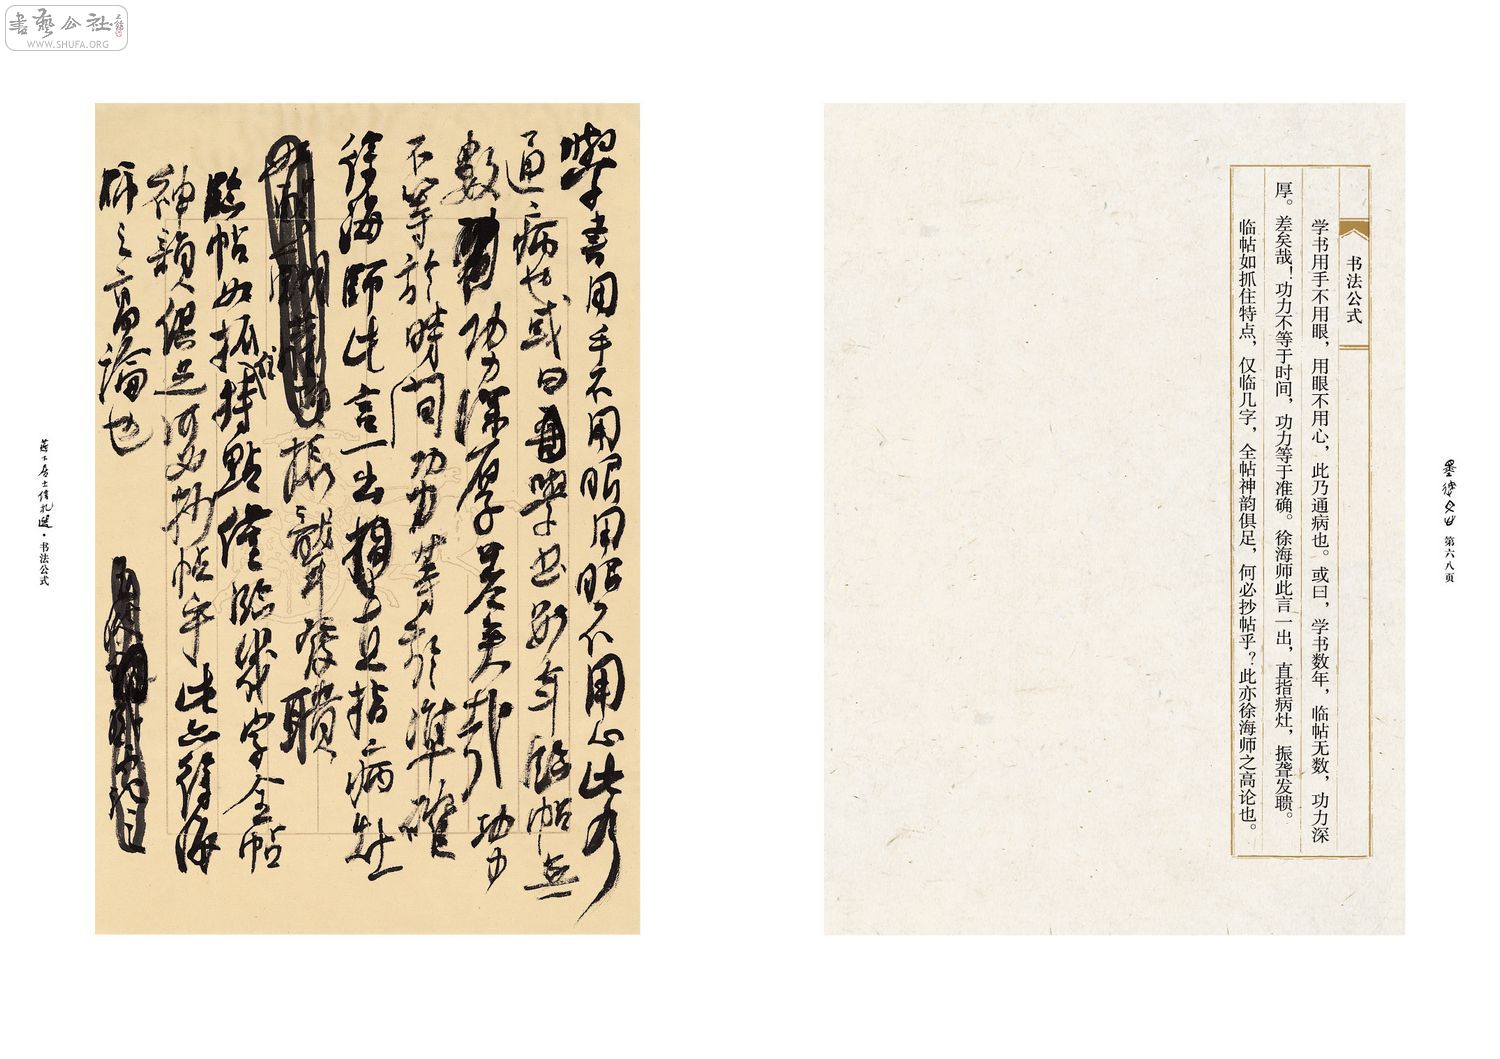 書藝公社
WWW.SHUFA.ORG
書法公式
学书用手不用眼，用眼不用心，此乃通病也。或曰，学书数年，临帖无数，功力深
厚。差矣哉！功力不等于时间，功力等于准确。徐海师此言一出，直指病灶，振聋发聩。
临帖如抓住特点，仅临几字，全帖神韵俱足，何必抄帖乎？此亦徐海师之高论也。
第六八页
學書用手不用眼用眼不用心此乃
通病也或曰學书数年臨帖無
數功力深厚差矣哉功力
不等於時间功力等於準確
徐海師此言一出直指病灶
振聾發聵
臨帖如抓住特點僅臨幾字全帖
神韻俱足何必抄帖乎此亦徐海
師之高論也
书法公式